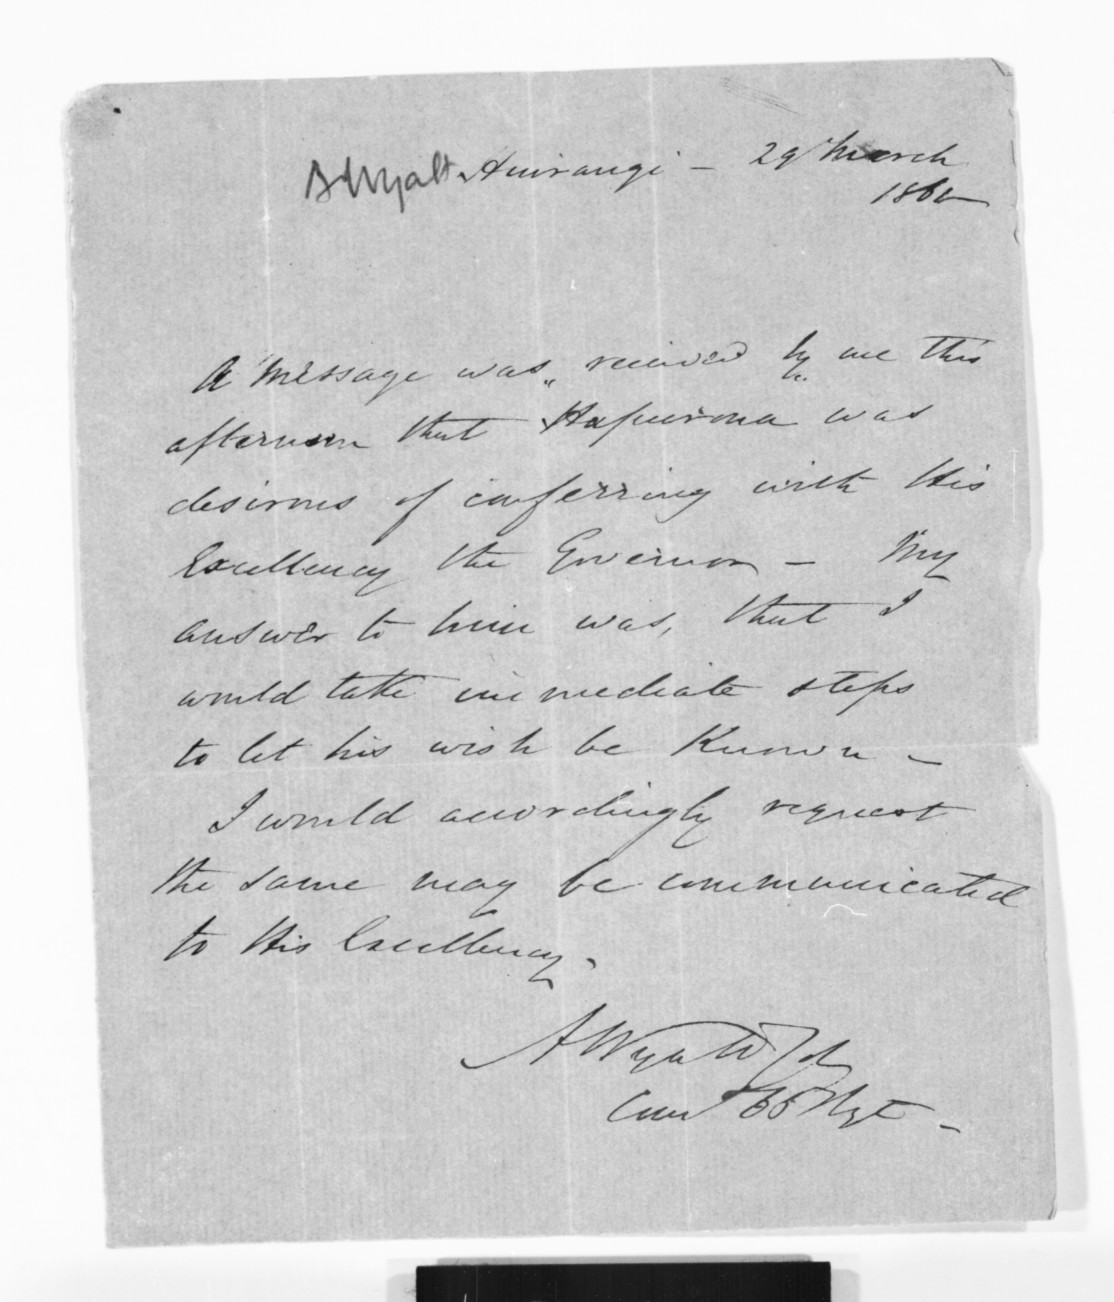 A Wyatt. Huirangi - 29 March
186
A message was received by me this
afternoon that Hapurona was
desirous of conferring with His
Excellency the Governor - My
answer to him was, that I
would take immediate steps
to let his wish be Known -
I would accordingly request
the same may be communicated
to His Excellency.
A Wyatt
65 Regt -